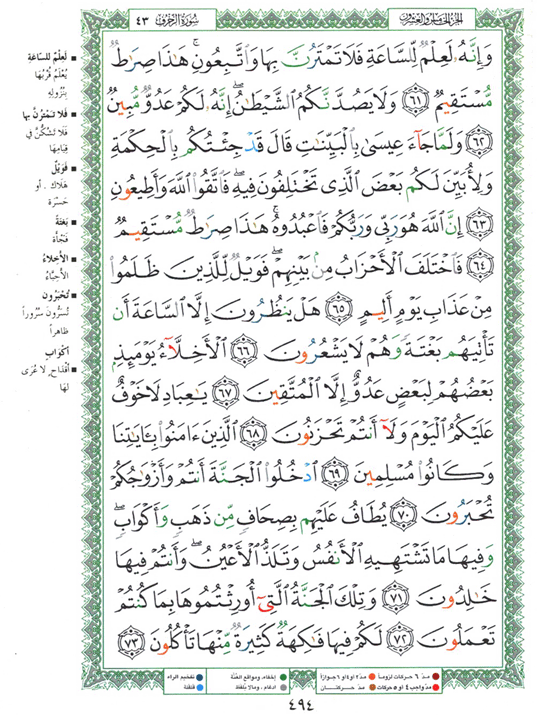 سُورَةُ الزُّخْرُفِ ٤٣
الجُزءُ الخَامِسُ وَالعِشْرُونَ
وَإِنَّهُۥ لَعِلْمٌ لِّلسَّاعَةِ فَلَا تَمْتَرُنَّ بِهَا وَٱتَّبِعُونِ ۚ هَـٰذَا صِرَٰطٌ
مُّسْتَقِيمٌ ﴿٦١﴾ وَلَا يَصُدَّنَّكُمُ ٱلشَّيْطَـٰنُ ۖ إِنَّهُۥ لَكُمْ عَدُوٌّ مُّبِينٌ
﴿٦٢﴾ وَلَمَّا جَآءَ عِيسَىٰ بِٱلْبَيِّنَـٰتِ قَالَ قَدْ جِئْتُكُم بِٱلْحِكْمَةِ
وَلِأُبَيِّنَ لَكُم بَعْضَ ٱلَّذِى تَخْتَلِفُونَ فِيهِ ۖ فَٱتَّقُوا۟ ٱللَّهَ وَأَطِيعُونِ
﴿٦٣﴾ إِنَّ ٱللَّهَ هُوَ رَبِّى وَرَبُّكُمْ فَٱعْبُدُوهُ ۚ هَـٰذَا صِرَٰطٌ مُّسْتَقِيمٌ
﴿٦٤﴾ فَٱخْتَلَفَ ٱلْأَحْزَابُ مِنۢ بَيْنِهِمْ ۖ فَوَيْلٌ لِّلَّذِينَ ظَلَمُوا۟
مِنْ عَذَابِ يَوْمٍ أَلِيمٍ ﴿٦٥﴾ هَلْ يَنظُرُونَ إِلَّا ٱلسَّاعَةَ أَن
تَأْتِيَهُم بَغْتَةً وَهُمْ لَا يَشْعُرُونَ ﴿٦٦﴾ ٱلْأَخِلَّآءُ يَوْمَئِذٍۭ
بَعْضُهُمْ لِبَعْضٍ عَدُوٌّ إِلَّا ٱلْمُتَّقِينَ ﴿٦٧﴾ يَـٰعِبَادِ لَا خَوْفٌ
عَلَيْكُمُ ٱلْيَوْمَ وَلَآ أَنتُمْ تَحْزَنُونَ ﴿٦٨﴾ ٱلَّذِينَ ءَامَنُوا۟ بِـَٔايَـٰتِنَا
وَكَانُوا۟ مُسْلِمِينَ ﴿٦٩﴾ ٱدْخُلُوا۟ ٱلْجَنَّةَ أَنتُمْ وَأَزْوَٰجُكُمْ
تُحْبَرُونَ ﴿٧٠﴾ يُطَافُ عَلَيْهِم بِصِحَافٍ مِّن ذَهَبٍ وَأَكْوَابٍ ۖ
وَفِيهَا مَا تَشْتَهِيهِ ٱلْأَنفُسُ وَتَلَذُّ ٱلْأَعْيُنُ ۖ وَأَنتُمْ فِيهَا
خَـٰلِدُونَ ﴿٧١﴾ وَتِلْكَ ٱلْجَنَّةُ ٱلَّتِىٓ أُورِثْتُمُوهَا بِمَا كُنتُمْ
تَعْمَلُونَ ﴿٧٢﴾ لَكُمْ فِيهَا فَـٰكِهَةٌ كَثِيرَةٌ مِّنْهَا تَأْكُلُونَ ﴿٧٣﴾
■ لَعِلْمٌ للسَّاعَةِ
يُعْلَمُ قُرْبُهَا
بِنُزُولِهِ
■ فَلَا تَمْتَرُنَّ بِها
فَلَا تَشُكُّنَّ فِي
قِيَامِهَا
■ فَوَيْلٌ
هَلَاكٌ . أو
حَسْرَة
■ بَغْتَةً
فَجْأَةً
■ الأَخِلاءُ
الأَحِبَّاءُ
■ تُحْبَرُون
تُسَرُّونَ سُرُوراً
ظَاهِراً
أكْوَابٍ
■ أقْدَاحٍ لا عُرَى
لَهَا
مدّ ٦ حركات لزوماً
مدّ ٢ أو ٤ أو ٦ جوازاً
إخفاء، ومواقع الغنّة
تفخيم الراء
مدّ واجب ٤ أو ٥ حركات
مدّ حركتان
ادغام ، وما لا يلفظ
قلقلة
٤٩٤